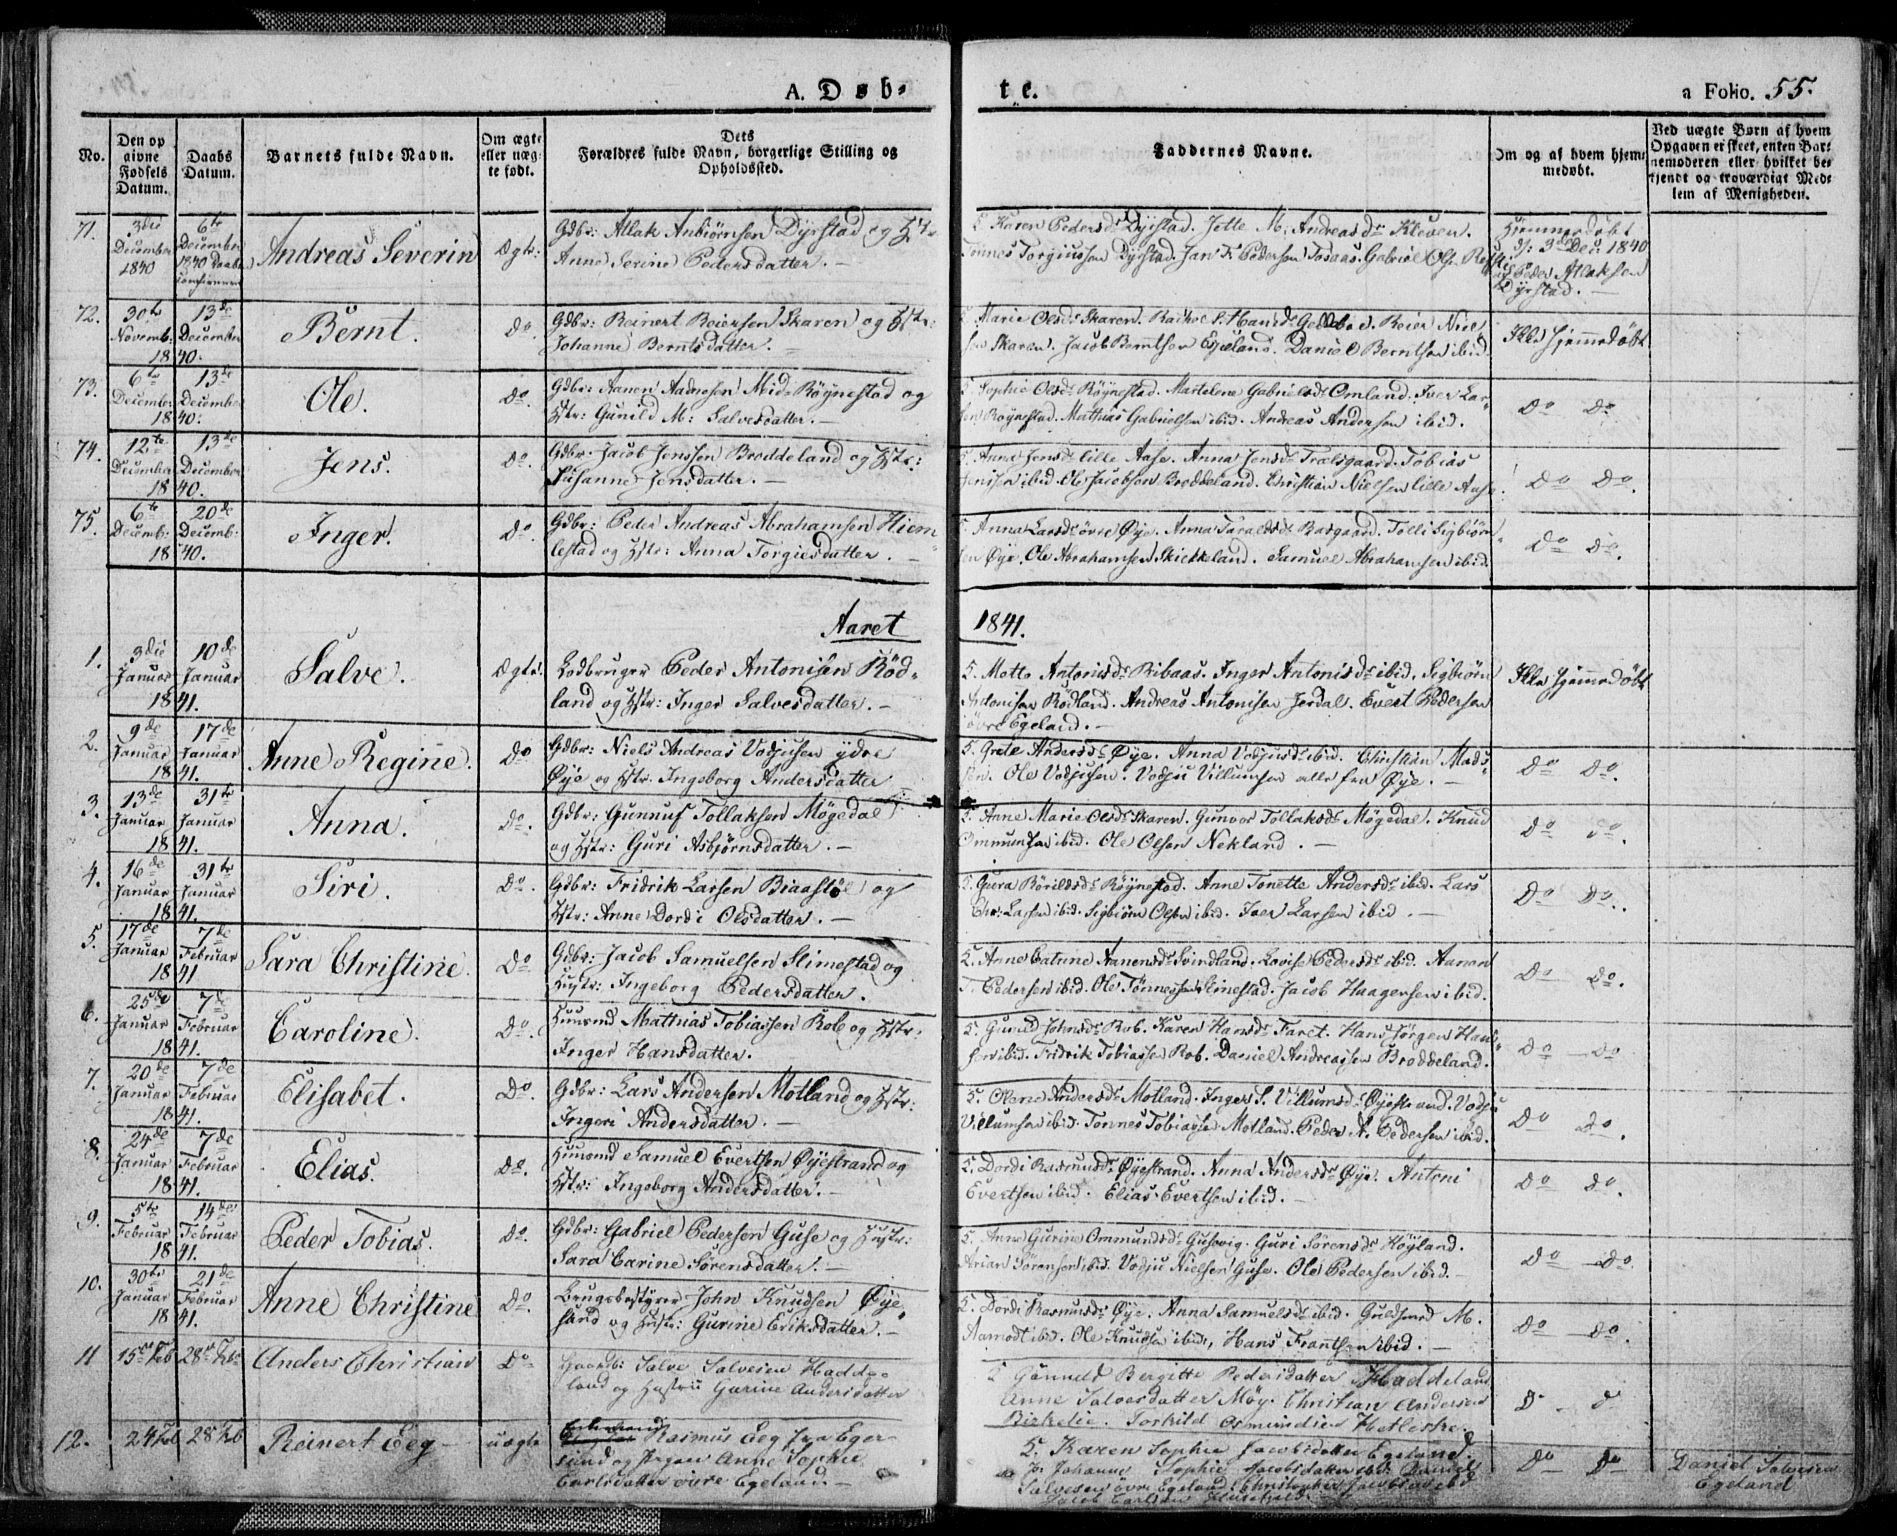 A. Døb-
te.
a Folio. 55.
No.
Den op
givne
Fødsels
Datum.
Daabs
Datum.
Barnets fulde Navn.
Om ægte
eller uæg-
te født.
Dets
Forældres fulde Navn, borgerlige Stilling og
Opholdssted.
Faddernes Navne.
Om og af hvem hjem-
medøbt.
Ved uægte Børn af hvem
Opgaven er skeet, enten Bar-
nemoderen eller hvilket be-
kjendt og troværdigt Med-
lem af Menigheden.
71.
3die
December
1840
6te
December
1840 Daaben
Andreas Severin
Ægte:
Gdbr: Atlak Anbiørnsen Dyrstad og Hstr
Anne Serine Pedersdatter. —
5 Karen Pedersdr Dyrstad. Jette M. Andreasdr Kleven.
Tønnes Torgiussen Dyrstad. Jan F. Pedersen Gabriel Ols.
Hjemmedøbt
d: 3die Dec: 1840
af Peder Atlaksen
Dyrstad. —
72.
30te
Novemb:
13de
December
1840.
Bernt.
Do
Gdbr: Reinert Reiersen Skaren og Hstr:
Johanne Berntsdatter. —
Marie Olsdr Skaren. Reier Niel
sen Skaren. Jacob Berntsen Egeland. Daniel Berntsen ibid.
Ikke hjemmedøbt
73.
6te
Decemb:
13de
December
1840:
Ole.
Do.
Gdbr: Aanen Aadnesen Mid-Røynestad og
Hstr: Gunild M: Salvesdatter. —
5 Sophie Olsdr Røynestad. Martelene Gabrielsdr Omland. Iver Lar-
sen Røynestad. Mathias Gabrielsen ibid. Andreas Andersen ibid.
Do Do
74.
12te
December
13de
December
1840.
Jens.
Do.
Gdbr. Jacob Jenssen Broddeland og Hstr:
Susanne Jensdatter. —
5. Anne Jensdr lille Aase. Anna Jensdr Trælsgaard. Tobias
Jenssen ibid. Ole Jacobsen Broddeland. Christian Nielsen lille Aase.
Do Do.
75.
6te
Decemb:
20de
Decemb:
1840.
Inger.
Do.
Gdbr: Peder Andreas Abrahamsen Hiem-
lestad og Hstr: Anna Torgiesdatter. —
5. Anna Larsdr øvre Øye. Anna Taraldsdr Tolli Sigbiørn-
sen Øye. Ole Abrahamsen Skiekkeland. Samuel Abrahamsen ibid.
Do Do.
Aaret
1841.
1.
3die
Januar
10de
Januar
1841.
Salve.
Ægte.
Lodbruger Peder Antonisen Rød-
land og Hstr: Inger Salvesdatter. —
5. Motte Antonisdr Ribaas. Inger Antonisdr ibid. Sigbiørn
Antonisen Rødland. Andreas Antonisen Jerdal. Evert Pedersen
øvre Egeland. —
Ikke hjemmedøbt
2.
9de
Januar
17de
Januar
1841.
Anne Regine.
Do
Gdbr: Niels Andreas Vodjusen ydre
Øye og Hstr. Ingeborg Andersdatter
5. Grete Andersdr Øye. Anna Vodjusdr ibid. Christian Mads-
sen. Ole Vodjusen. Vodju Villumsen alle fra Øye. —
Do Do.
3.
13de
Januar
31te
Januar
1841.
Anna.
Do.
Gdbr: Gunnuf Tollaksen Møgedal
og Hstr: Guri Asbjørnsdatter. —
5. Anne Marie Olsdr Skaren. Gunvor Tollaksdr Møgedal. Knud
Ommundsen ibid. Ole Olsen Nekland. —
Do Do.
4.
16de
Januar
31te
Januar
1841.
Siri.
Do.
Gdbr: Fridrik Larsen Biaastøl og
Hstr: Anne Dordi Olsdatter. —
5. Røynestad. Anne Tonette Andersdr ibid. Lars
Chr: Larsen ibid. Sigbiørn Olsen ibid. Iver Larsen ibid. —
Do Do.
5.
17de
Januar
7de
Februar
1841
Sara Christine.
Do.
Gdbr: Jacob Samuelsen Slimestad og
Hustr: Ingeborg Pedersdatter.
5. Anne Catrine Aanensdr Svindland. Lovise Pedersdr ibid. Aanen
T. Pedersen ibid. Ole Tønnessen Slimestad. Jacob Haagensen ibid.
Do Do.
6.
25de
Januar
7de
Februar
1841.
Caroline.
Do.
Huusmd Mathias Tobiassen Rob og Hstr:
Inger Hansdatter.
5. Gunild Johnsdr Rob. Karen Hansdr Faret. Hans Jørgen Han-
sen ibid. Fridrik Tobiassen Rob. Daniel Andreassen Broddeland.
Do Do
7.
20de
Januar
7de
Februar
1841.
Elisabet.
Do.
Gdbr: Lars Andersen Motland og Hstr:
Ingeri Andersdatter. —
5. Olene Andersdr Motland. Inger S. Villumsdr Øyestrand. Vodju
Villumsen ibid. Tønnes Tobiassen Motland. Peder A. Pedersen ibid.
Do Do.
8.
24de
Januar
7de
Februar
1841.
Elias.
Do.
Huusmd Samuel Evertsen Øyestrand og
Hstr: Ingeborg Andersdatter. —
5. Dordi Rasmusdr Øyestrand. Anna Andersdr Øye. Antoni
Evertsen ibid. Elias Evertsen ibid. —
Do Do.
9.
5te
Februar
14de
Februar
1841.
Peder Tobias.
Do.
Gdbr: Gabriel Pedersen Guse og Hustr:
Sara Carine Sørensdatter. —
5. Anne Gurine Ommundsdr Gusevig. Guri Sørensdr Høyland.
Arian Sørensen ibid. Vodju Nielsen Guse. Ole Pedersen ibid. —
Do Do.
10.
30te
Januar
21de
Februar
1841.
Anne Christine
Do.
Brugsbestyrer John Knudsen Øye-
sund og Hustr: Gurine Eriksdatter. —
5. Dordi Rasmusdr Øye. Anna Samuelsdr ibid. Gudmund M.
Aamodt ibid. Ole Knudsen ibid., Hans Frantsen ibid. —
Do Do.
11
15de Feb
28de Feb
Anders Christian
Do
Gaardb: Salve Salvesen Hadde-
land og Hustru Gurine Andersdatter
5 Gunnild Bergitte Pedersdatter Haddeland
Anne Salvesdatter Møy. Christian Andersen
Birkelie. Torkild Osmundsen Hetleske.
D. d
12.
24 Feb
28 Feb
Reinert Eeg —
uægte
Rasmus Eeg fra Eger-
sund og Pigen Anne Sophie
Carlsdatter øvre Egeland. —
5. Karen Sophie Jacobsdatter Egeland.
Johanne Sophie Jacobsdatter ibd. Daniel
Salvesen øvre Egeland. Christopher Jacobsen ibd
Jacob Carlsen
Do Do
Daniel Salvesen
Egeland